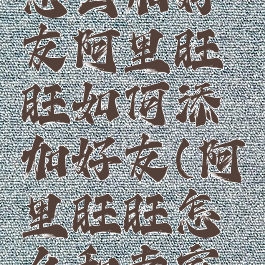 怎么加好
友阿里旺
旺如何添
加好友(阿
里旺旺怎